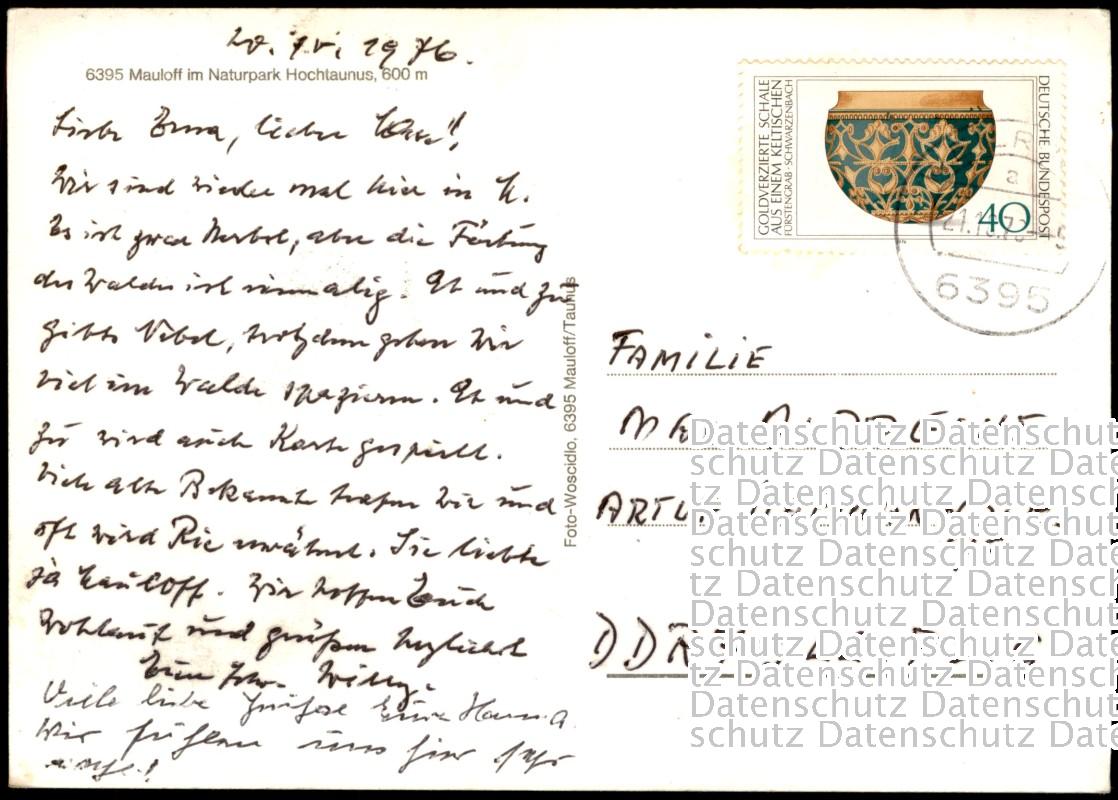 1976.
6395 Mauloff im Naturpark Hochtaunus, 600 m
Liebe Erna, lieber
Wir sind wieder mal hier in M.
Es ist zwar Herbst, aber die Färbung
des Waldes ist einmalig. Ab und zu
gibts Nebel, trotzdem gehen wir
viel im Walde spazieren. Ab und
zu wird auch Karte gespielt.
Viele alte Bekannte trafen wir und
oft wird Ria erwähnt. Sie liebte
ja Mauloff. Wir hoffen Euch
wohlauf und grüßen herzlichst
Eure Willy.
Viele liebe Grüße Eure Hanna
Wir fühlen uns hier sehr
wohl!
Foto-Woscidlo, 6395 Mauloff/Taunus
GOLDVERZIERTE SCHALE
AUS EINEM KELTISCHEN
FÜRSTENGRAB · SCHWARZENBACH
DEUTSCHE BUNDESPOST
40
a
6395
FAMILIE
DDR
Datenschutz Datenschutz
schutz Datenschutz Date
tz Datenschutz Datensch
Datenschutz Datenschutz
schutz Datenschutz Date
tz Datenschutz Datensch
Datenschutz Datenschutz
schutz Datenschutz Date
tz Datenschutz Datensch
Datenschutz Datenschutz
schutz Datenschutz Date